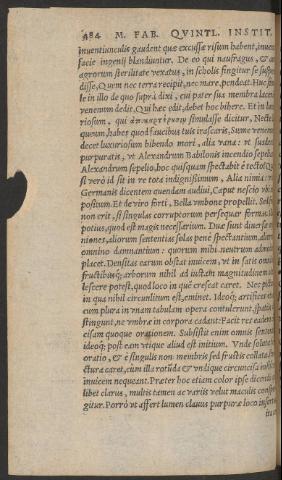 484 M. FAB. QVINTL. INSTIT.
inuentiunculis gaudent quæ excussæ risum habent, inuen
facie ingenij blandiuntur. De eo qui naufragus, & 
agrorum sterilitate vexatus, in scholis fingitur se susp
disse, Quem nec terra recipit, nec mare, pendeat. Huic 
le in illo de quo supra dixi, cui pater sua membra lacer
venenum dedit, Qui hæc edit, debet hoc bibere. Et in 
riosum, qui simulasse dicitur, Necte
queum, habes quod faucibus tuis irascaris, Sume venenum
decet luxuriosum bibendo mori, alia vana: vt suaden
purpuratis, vt Alexandrum Babilonis incendio sepelia
Alexandrum sepelio, hoc quisquam spectabit è tecto? 
si verò id sit in re tota indignissimum, Alia nimia: 
Germanis dicentem quendam audiui, Caput nescio vbi
positum. Et de viro forti, Bella vmbone propellit. Sed 
non erit, si singulas corruptorum persequar formas. 
potius, quod est magis necessarium. Duæ sunt diuersæ 
niones, aliorum sententias solas penè spectantium, aliorum
omnino damnantium: quorum mihi neutrum admodum
placet. Densitas earum obstat inuicem, vt in satis omnibus
fructibusq; arborum nihil ad iustam magnitudinem 
lescere potest, quod loco in quē crescat caret. Nec pict
in qua nihil circunlitum est, eminet. Ideoq; artifices 
cum plura in vnam tabulam opera contulerunt, spatijs
stingunt, ne vmbræ in corpora cadant: Facit res eadem
cisam quoque orationem. Subsistit enim omnis sententia
ideoq; post eam vtique aliud est initium. Vnde soluta
oratio, & è singulis non membris sed frustis collata,
ctura caret, cum illa rotūda & vndique circuncisa insist
inuicem nequeant. Præter hoc etiam color ipse dicendi 
libet clarus, multis tamen ac varijs velut maculis consp
gitur. Porrò vt affert lumen clauus purpuræ loco insertus